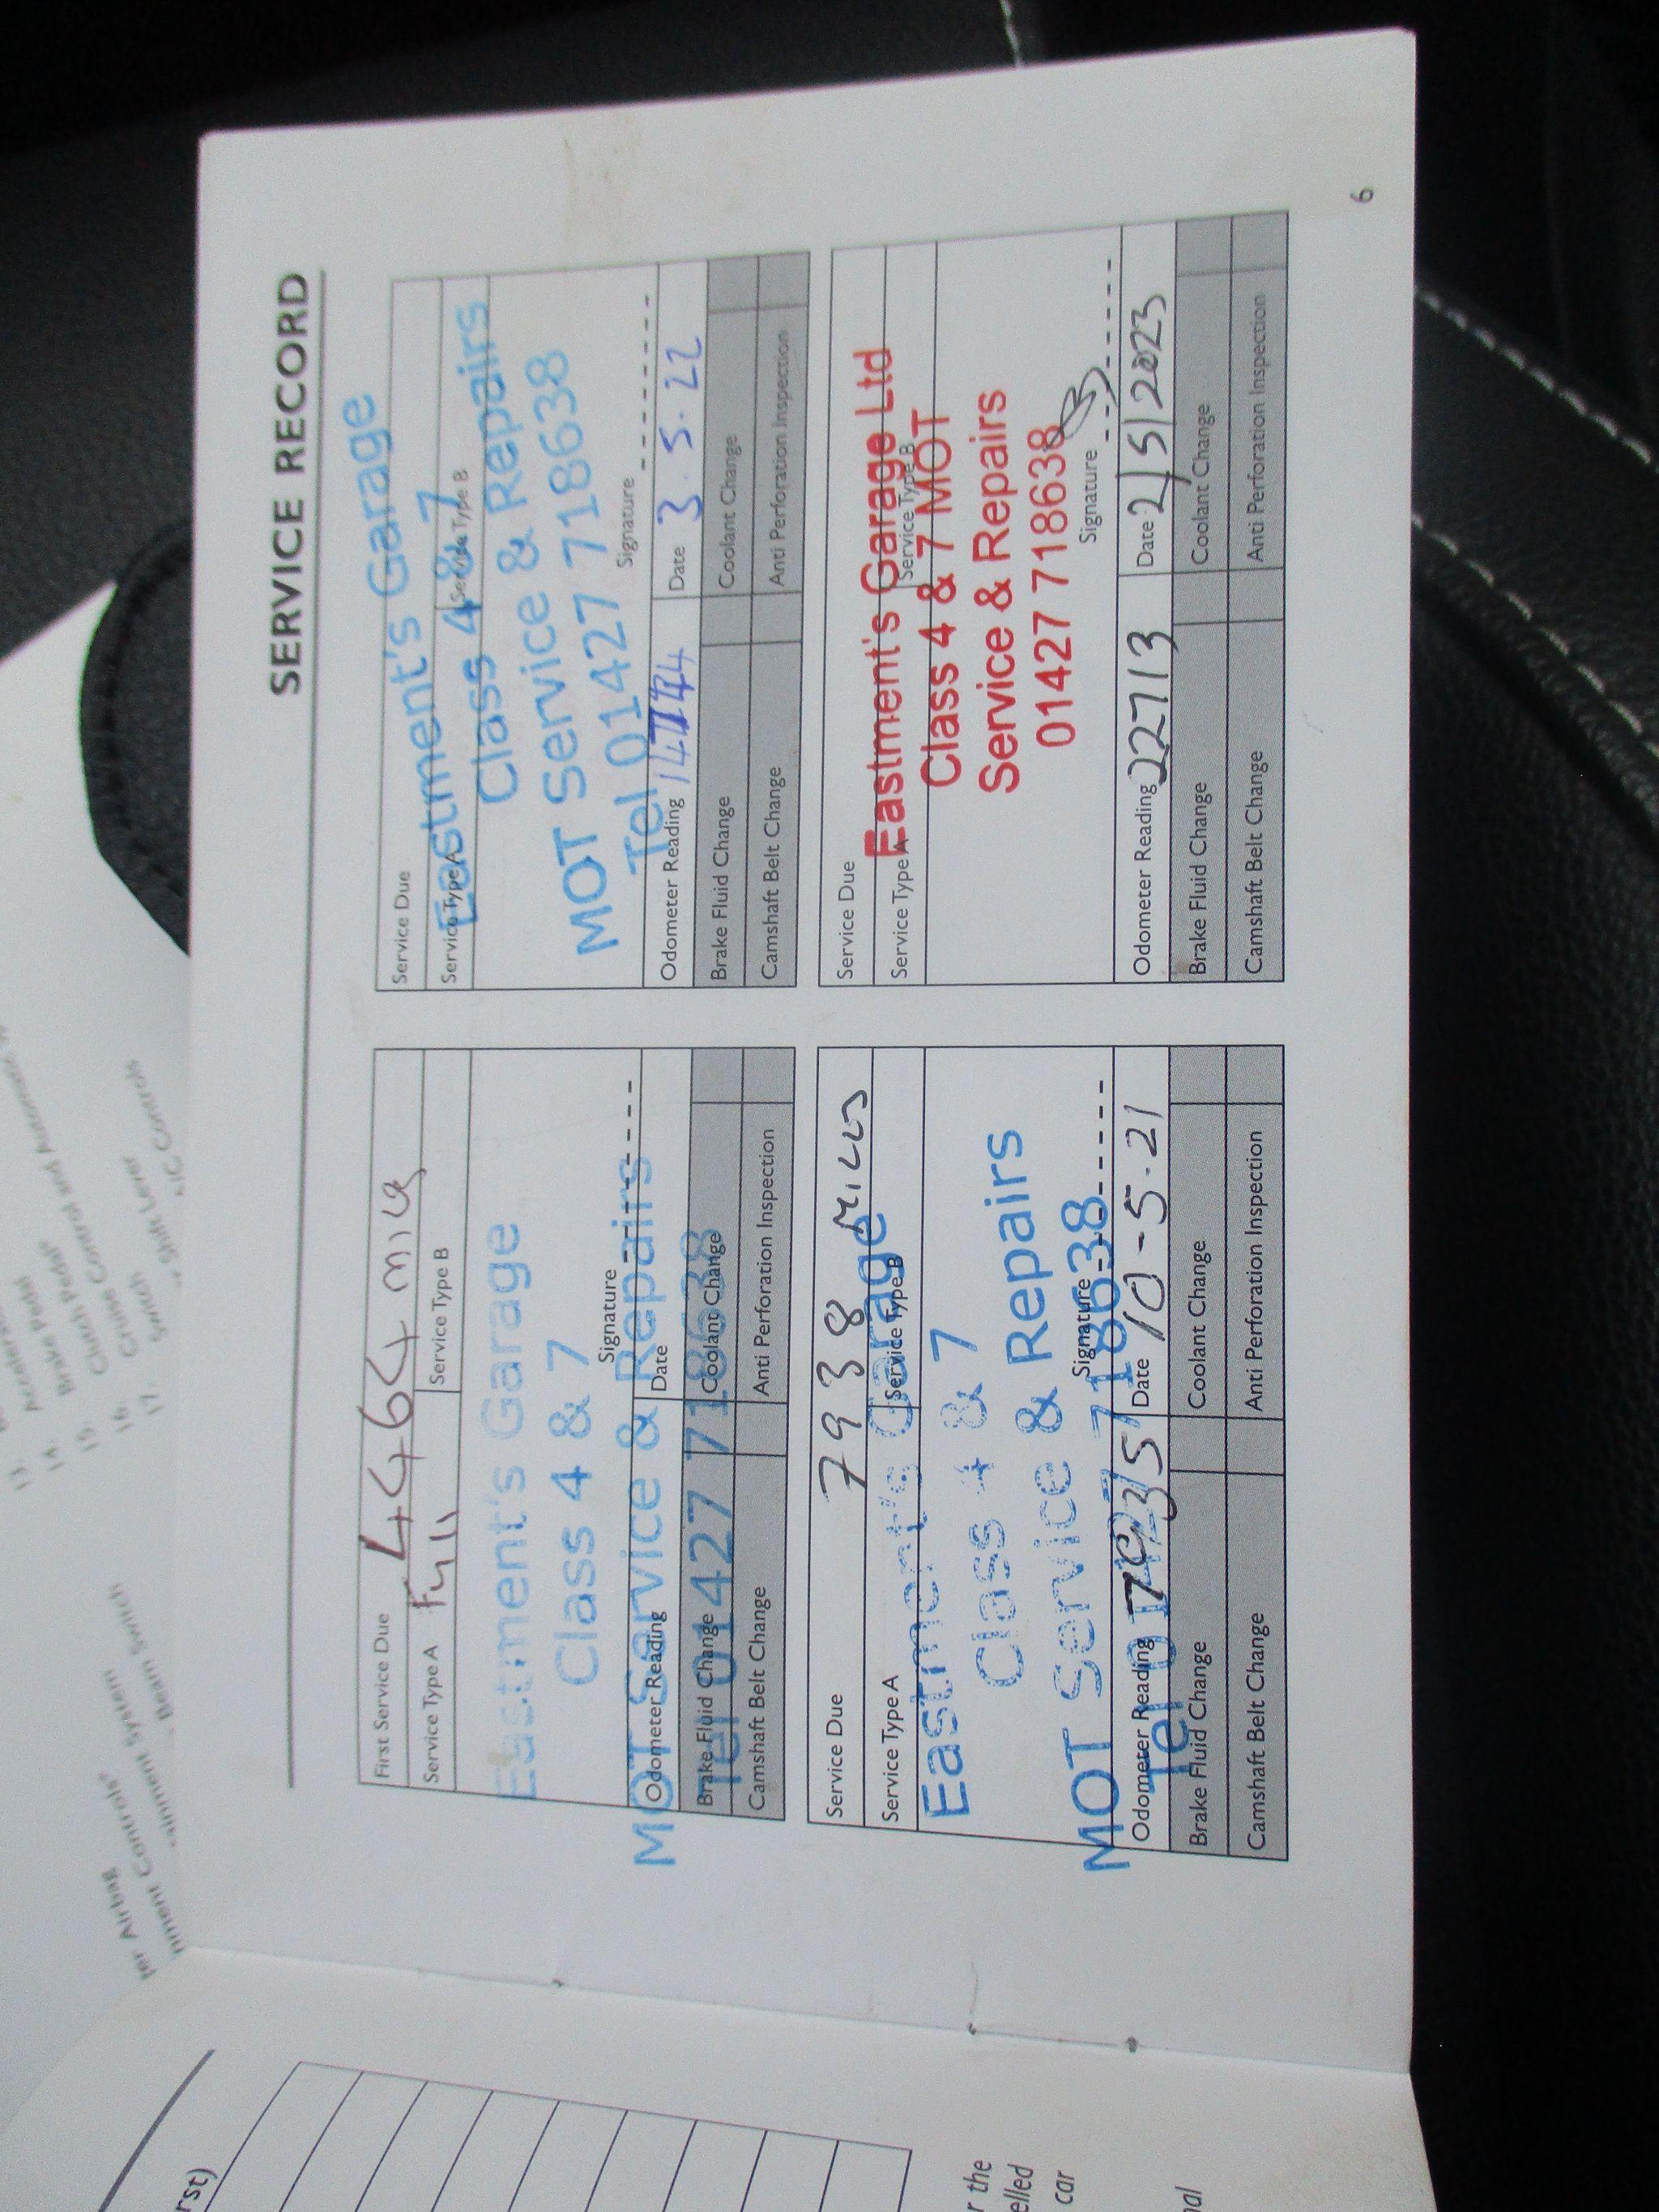 SERVICE RECORD
First Service Due 4464
Service Type A Full Service Type B
Eastment's Garage
Class 4 & 7
Signature
MOT Service & Repairs
Odometer Reading Date
Tel 01427 718638
Brake Fluid Change Coolant Change
Camshaft Belt Change Anti Perforation Inspection
Service Due
Eastment's Garage
Service Type A Service Type B
Class 4 & 7
MOT Service & Repairs
Tel 01427 718638
Signature
Odometer Reading Date 3.5.22
Brake Fluid Change Coolant Change
Camshaft Belt Change Anti Perforation Inspection
Service Due 7938 Miles
Service Type A Service Type B
Eastment's Garage
Class 4 & 7
MOT Service & Repairs
Signature
Tel 01427 718638
Odometer Reading Date 10-5.21
Brake Fluid Change Coolant Change
Camshaft Belt Change Anti Perforation Inspection
Service Due
Service Type A Service Type B
Eastment's Garage Ltd
Class 4 & 7 MOT
Service & Repairs
01427 718638
Signature
Odometer Reading 22713 Date 2/5/2023
Brake Fluid Change Coolant Change
Camshaft Belt Change Anti Perforation Inspection
6
Brake Pedal
Clutch Pedal
Cruise Control and
Switch
Shift Lever
Controls
Airbag
Controls
System
Beam Switch
r the
car